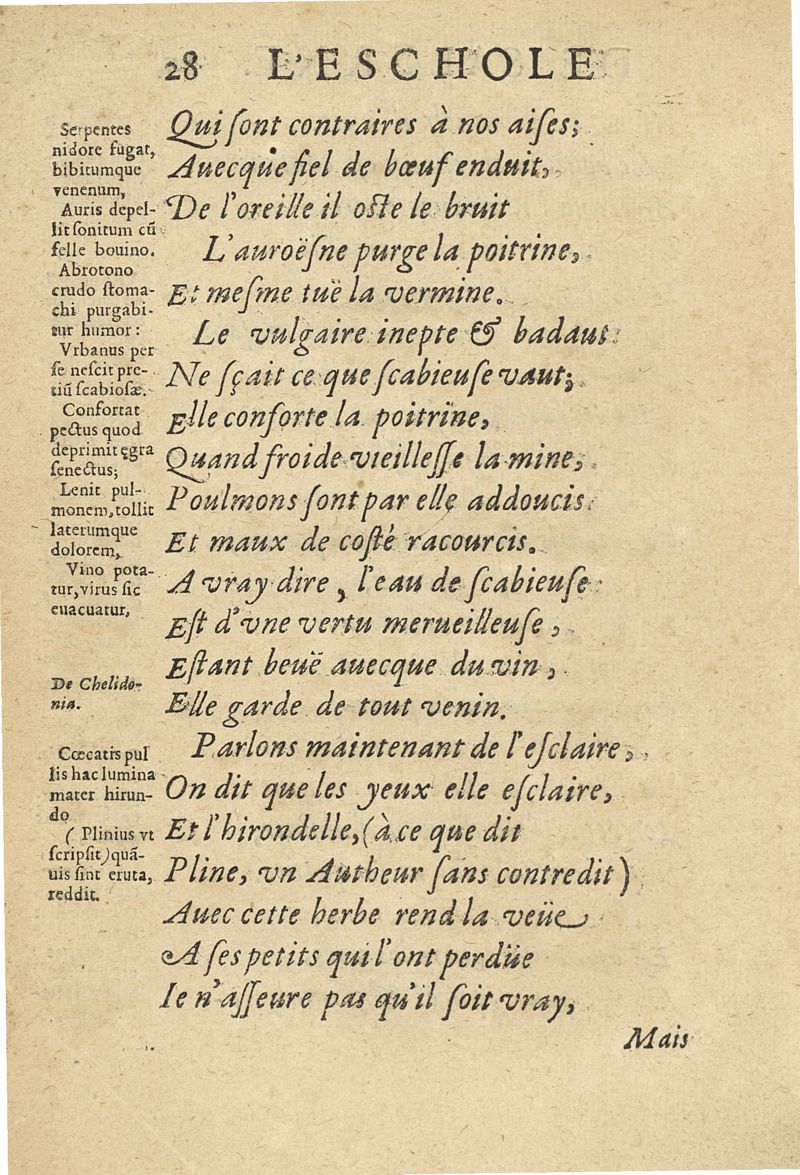 28 L'ESCHOLE
Serpentes
nidore fugat,
bibitumque
venenum,
Auris depel-
lit sonitum cū
felle bouino.
Abrotono
crudo stoma-
chi purgabi-
tur humor:
Vrbanus per
se nescit pre-
tiū scabiosæ.
Confortat
pectus quod
deprimit ęgra
senectus;
Lenit pul-
monem, tollit
laterumque
dolorem,
Vino pota-
tur, virus sic
euacuatur,
De Chelido-
nia.
Cœcatis pul
lis hac lumina
mater hirun-
do
( Plinius vt
scripsit) quā-
uis sint eruta,
reddit.
Qui sont contraires à nos aises;
Auecque fiel de bœuf enduit,
De l'oreille il oste le bruit
L'auroësne purge la poitrine,
Et mesme tuë la vermine.
Le vulgaire inepte & badaut
Ne sçait ce que scabieuse vaut;
Elle conforte la poitrïne,
Quand froide vieillesse la mine,
Poulmons sont par elle addoucis
Et maux de costé racourcis.
A vray dire, l'eau de scabieuse
Est d'vne vertu merueilleuse,
Estant beuë auecque du vin,
Elle garde de tout venin.
Parlons maintenant de l'esclaire,
On dit que les yeux elle esclaire,
Et l'hirondelle, (à ce que dit
Pline, vn Autheur sans contredit)
Auec cette herbe rend la veüe
A ses petits qui l'ont perdüe
Ie n'asseure pas qu'il soit vray,
Mais